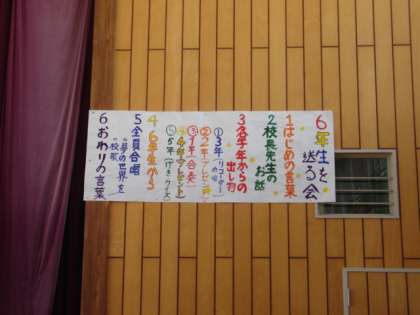 6年生を
送る会
1はじめの言葉
2校長先生の
お話
3各学年からの
出し物
①3年(リコーダー
②2年(プレゼント
③1年(合奏)
④4年(プレゼント)
⑤5年(げき・クイズ)
4 6年生から
5全員合唱
"夢の世界を"
"校歌"
6おわりの言葉